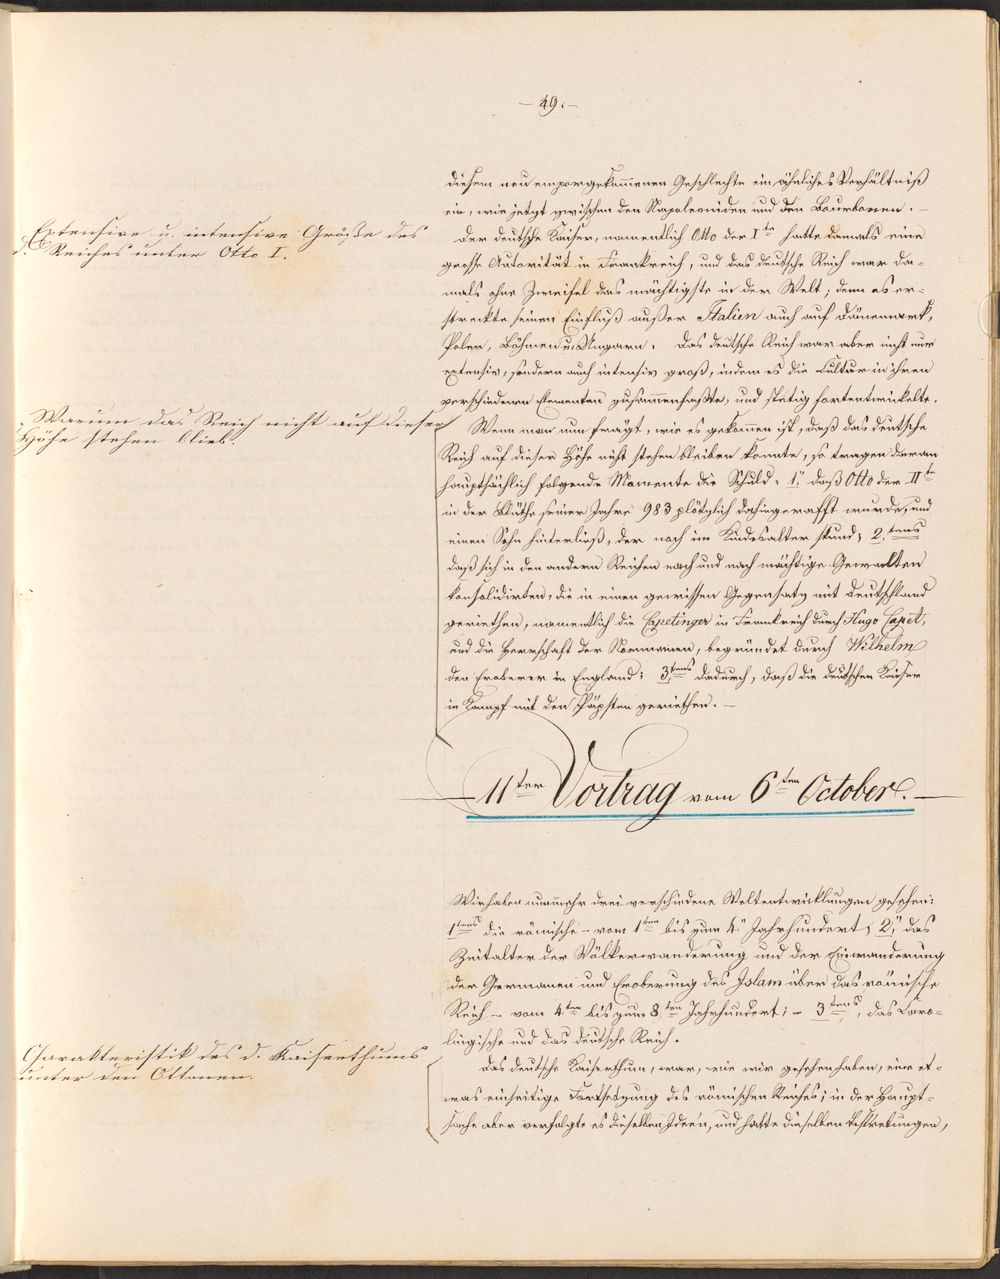 — 49. —
diesem neu emporgekommenen Geschlechte ein ähnliches Verhältniß
ein, wie jetzt zwischen den Napoleoniden und den Bourbonen. —
Extensive u. intensive Größe des
d. Reiches unter Otto I.
Der deutsche Kaiser, namentlich Otto der Ite hatte damals eine
grosse Autorität in Frankreich, und das deutsche Reich war da-
mals ohne Zweifel das mächtigste in der Welt; denn es er-
streckte seinen Einfluß außer Italien auch auf Dänemark,
Polen, Böhmen u. Ungarn. Das deutsche Reich war aber nicht nur
extensiv, sondern auch intensiv groß, indem es die Cultur in ihren
verschiedenen Elementen zusammenfaßte, und stetig fortentwickelte.
Warum das Reich nicht auf dieser
Höhe stehen blieb.
Wenn man nun frägt, wie es gekommen ist, daß das deutsche
Reich auf dieser Höhe nicht stehen bleiben konnte, so tragen daran
hauptsächlich folgende Momente die Schuld: 1., daß Otto der IIte
in der Blüthe seiner Jahre 983 plötzlich dahingerafft wurde, und
einen Sohn hinterließ, der noch im Kindesalter stund; 2.tens
daß sich in den andern Reichen nach und nach mächtige Gewalten
konsolidirten, die in einen gewissen Gegensatz mit Deutschland
geriethen, namentlich die Capetinger in Frankreich durch Hugo Capet,
und die Herrschaft der Normannen, begründet durch Wilhelm
den Eroberer in England; 3.tens dadurch, daß die deutschen Kaiser
in Kampf mit den Päpsten geriethen. —
— 11ter Vortrag vom 6ten October. —
Wir haben nunmehr drei verschiedene Weltentwicklungen gesehen:
1tens die römische – vom 1ten bis zum 4. Jahrhundert; 2., das
Zeitalter der Völkerwanderung und der Einwanderung
der Germanen und Eroberung des Islam über das römische
Reich – vom 4ten bis zum 8ten Jahrhundert; – 3tens, das Caro-
lingische und das deutsche Reich.
Charakteristik des d. Kaiserthums
unter den Ottonen.
Das deutsche Kaiserthum, war, wie wir gesehen haben, eine et-
was einseitige Fortsetzung des römischen Reiches; in der Haupt-
sache aber verfolgte es dieselben Ideen, und hatte dieselben Bestrebungen,